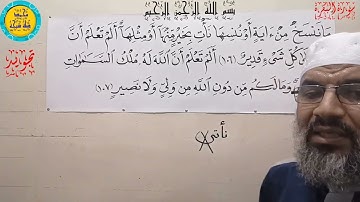 بسم الله الرحمن الرحيم
سورة البقرة
تجويد
مَا نَنسَخْ مِنْ ءَايَةٍ أَوْ نُنسِهَا نَأْتِ بِخَيْرٍ مِّنْهَا أَوْ مِثْلِهَا أَلَمْ تَعْلَمْ أَنَّ
عَلَى كُلِّ شَىْءٍ قَدِيرٌ (١٠٦) أَلَمْ تَعْلَمْ أَنَّ اللَّهَ لَهُ مُلْكُ السَّمَاوَاتِ
وَمَا لَكُم مِّن دُونِ اللَّهِ مِن وَلِيٍّ وَلَا نَصِيرٍ (١٠٧)
نأتي